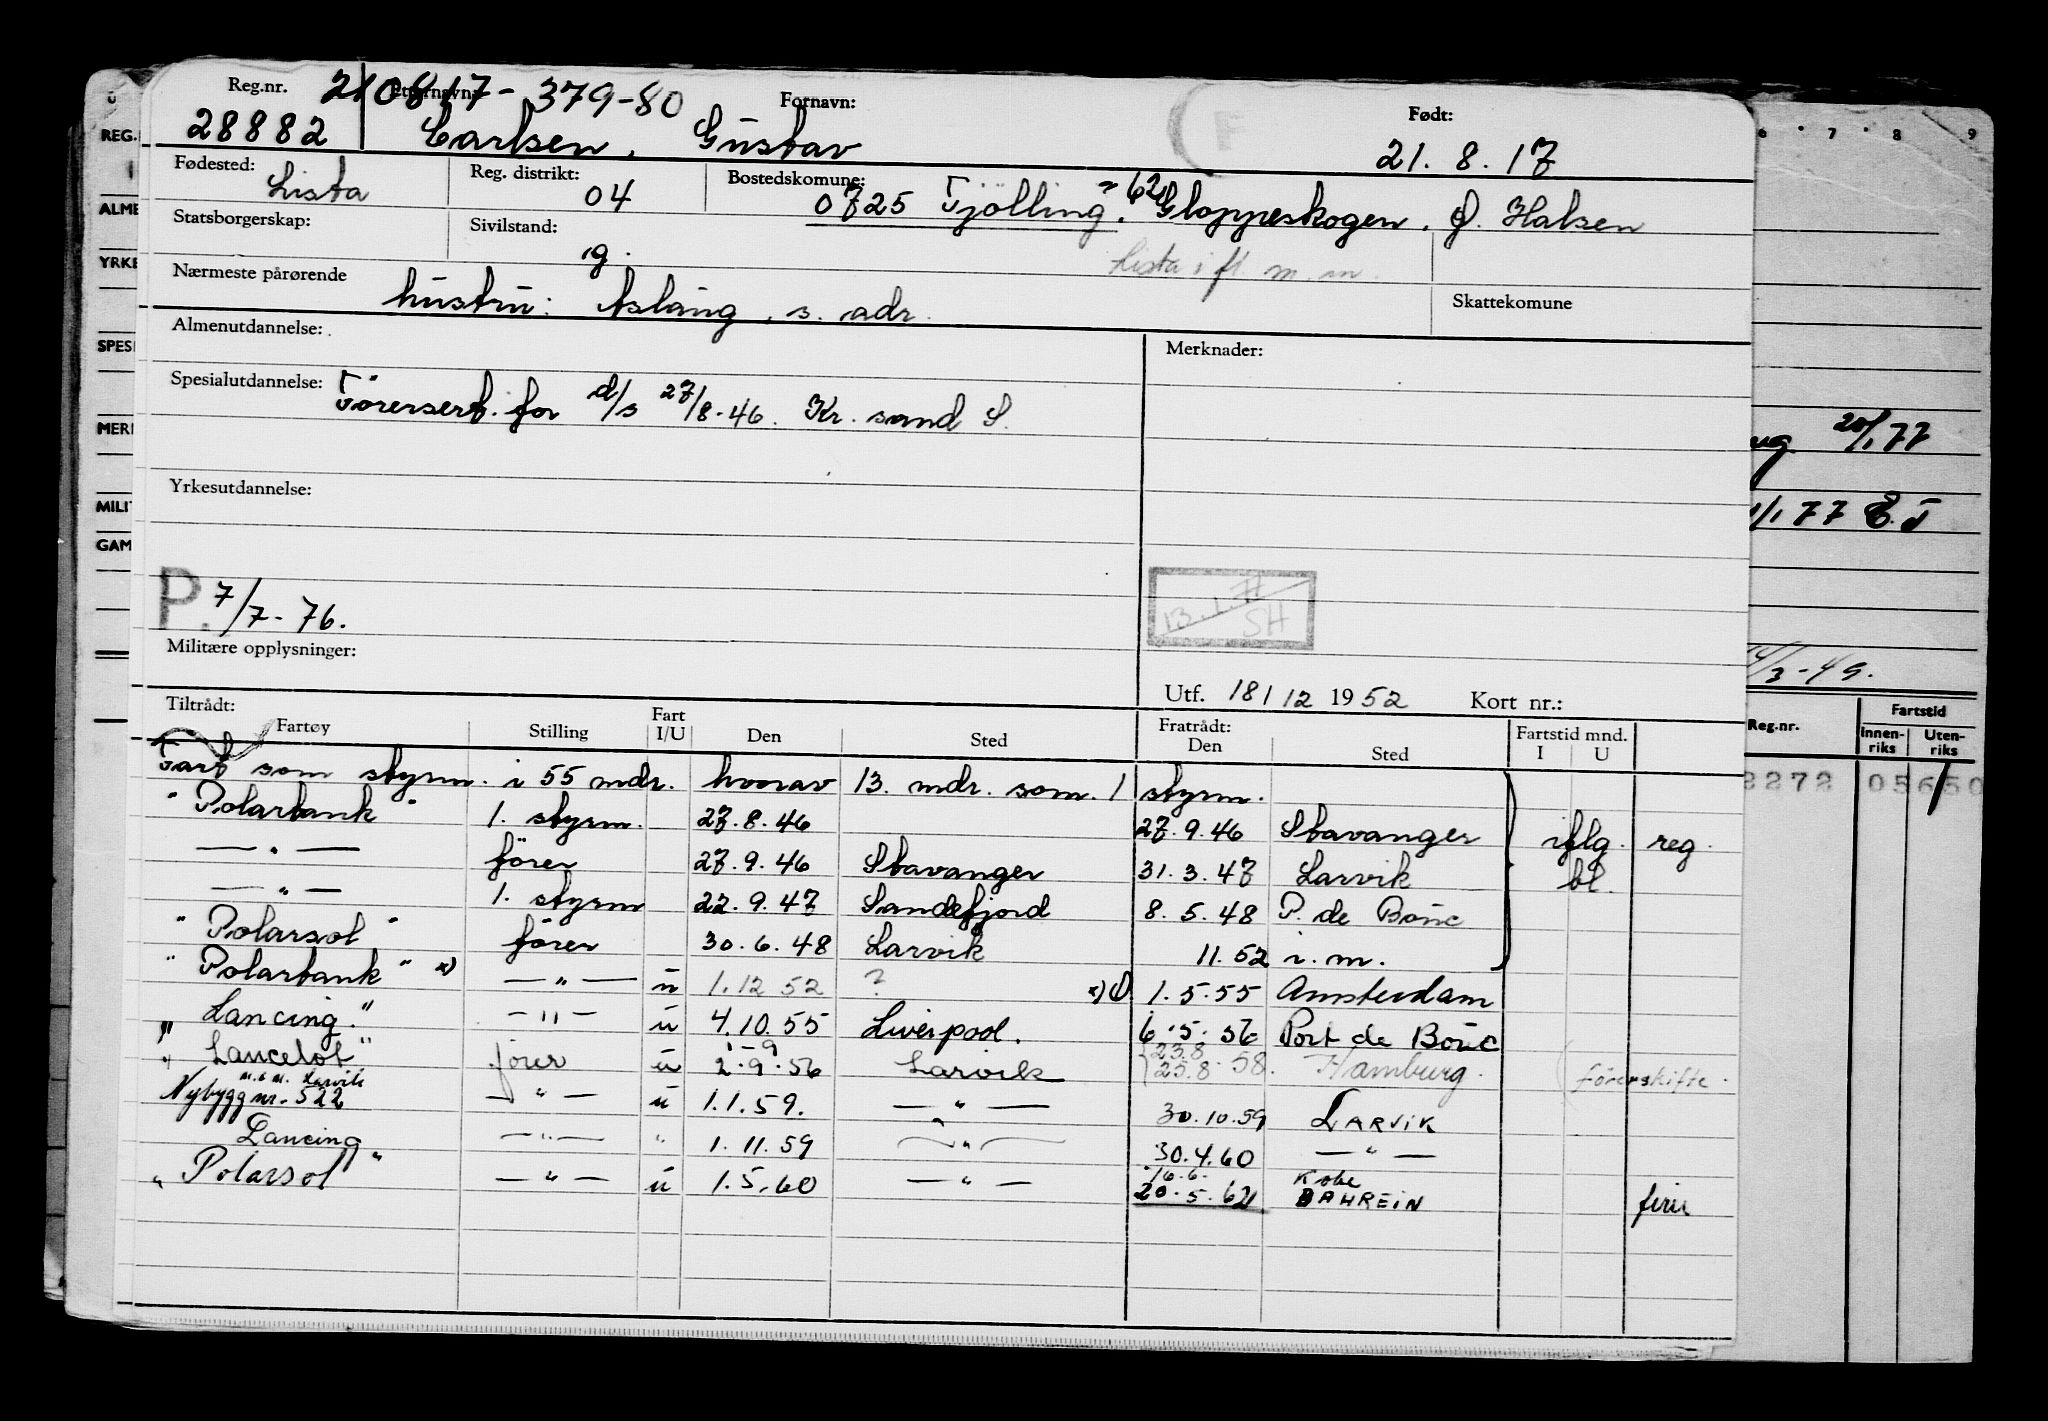 Reg.nr. Etternavn: 210817-379-80 Fornavn: Født:
28882 Carlsen, Gustav 21.8.17
Fødested: Lista Reg. distrikt: 04 Bostedskommune: 0725 Tjölling, Gloppeskogen, Ø. Halsen
Statsborgerskap: Sivilstand: g. Lista i fl. m. m.
Nærmeste pårørende hustru: Aslaug, s. adr. Skattekomune
Almenutdannelse: Merknader:
Spesialutdannelse: Förersert. for d/s 27/8-46. Kr. sand S.
Yrkesutdannelse:
P. 7/7-76. 13.1.71 SH
Militære opplysninger:
Utf. 18/12 1952 Kort nr.:
Tiltrådt: Fratrådt:
Fartøy Stilling Fart I/U Den Sted Den Sted Fartstid mnd. I U
Fart som styrm. i 55 mdr. hvorav 13. mdr. som. 1 styrm.
"Polartank" 1. styrm. 27.8.46 27.9.46 Stavanger iflg. reg.
— " — förer 27.9.46 Stavanger 31.3.47 Larvik bl.
— " — 1. styrm 22.9.47 Sandefjord 8.5.48 P. de Bouc
"Polarsol" förer 30.6.48 Larvik 11.52 i.m.
"Polartank" x) — " — u 1.12 52 ? x) 1.5.55 Amsterdam
"Lancing." — " — u 4.10.55 Liverpool. 6.5.56 Port de Bouc
"Lancelot" förer u 1-9 2.9.56 Larvik 23.8 25.8.58. Hamburg. förerskifte.
Nybygg nr. 522 m.s m. Larvik — " — u 1.1.59. — " — 30.10.59 LARVIK
Lancing" — " — " 1.11.59 — " — 30.4.60 — " —
"Polarsol — " — u 1.5.60 — " — 16.6. 20.5.62 Kobe BAHREIN
REG.
ALME
YRKE
SPES
MER
MILI
GAM
6 7 8 9
ug 20/1 77
/1 77 E.T
/3-49.
Reg.nr. Fartstid
Innenriks Utenriks
2272 05650